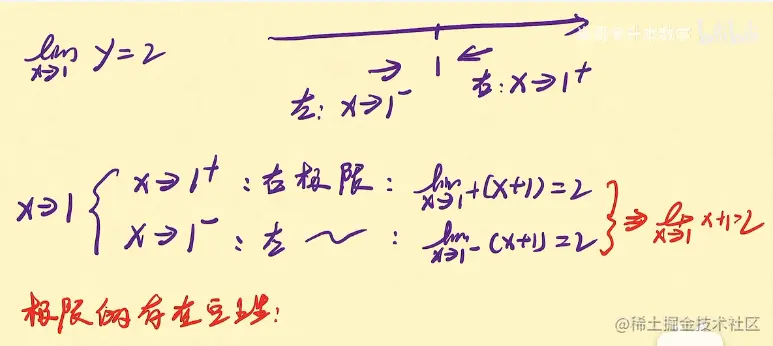 lim x→1 y=2
1
左: x→1⁻
右: x→1⁺
x→1 { x→1⁺ : 右极限 : lim x→1⁺ (x+1)=2
x→1⁻ : 左 ~ : lim x→1⁻ (x+1)=2 } ⇒ lim x→1 x+1=2
极限的存在
@稀土掘金技术社区